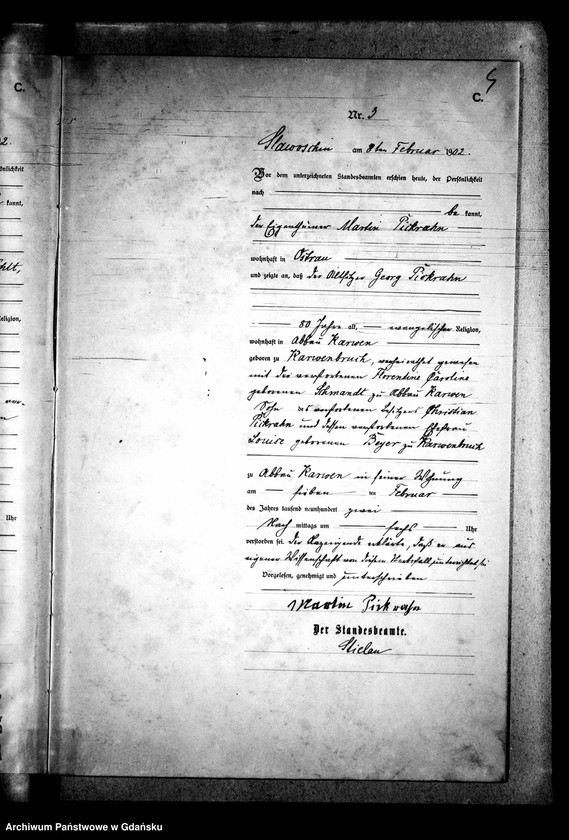 C.
5
C.
Nr. 3
Slawoschin am 8ten Februar 1902.
Vor dem unterzeichneten Standesbeamten erschien heute, der Persönlichkeit
nach
be kannt,
der Eigenthümer Martin Pickrahn
wohnhaft in Ostrau
und zeigte an, daß der Altsitzer Georg Pickrahn
80 Jahre alt, evangelischer Religion,
wohnhaft in Abbau Karwen
geboren zu Karwenbruch, verheirathet gewesen
mit der verstorbenen Florentine Caroline
geborenen Schmandt zu Abbau Karwen
Sohn des verstorbenen Besitzers Christian
Pickrahn und dessen verstorbenen Ehefrau
Louise geborenen Beyer zu Karwenbruch
zu Abbau Karwen in seiner Wohnung
am sieben ten Februar
des Jahres tausend neunhundert zwei
Nach mittags um sechs Uhr
verstorben sei. Der Anzeigende erklärte, daß er aus
eigener Wissenschaft von diesem Sterbefall unterrichtet sei
Vorgelesen, genehmigt und unterschrieben
Martin Pickrahn
Der Standesbeamte.
Archiwum Państwowe w Gdańsku